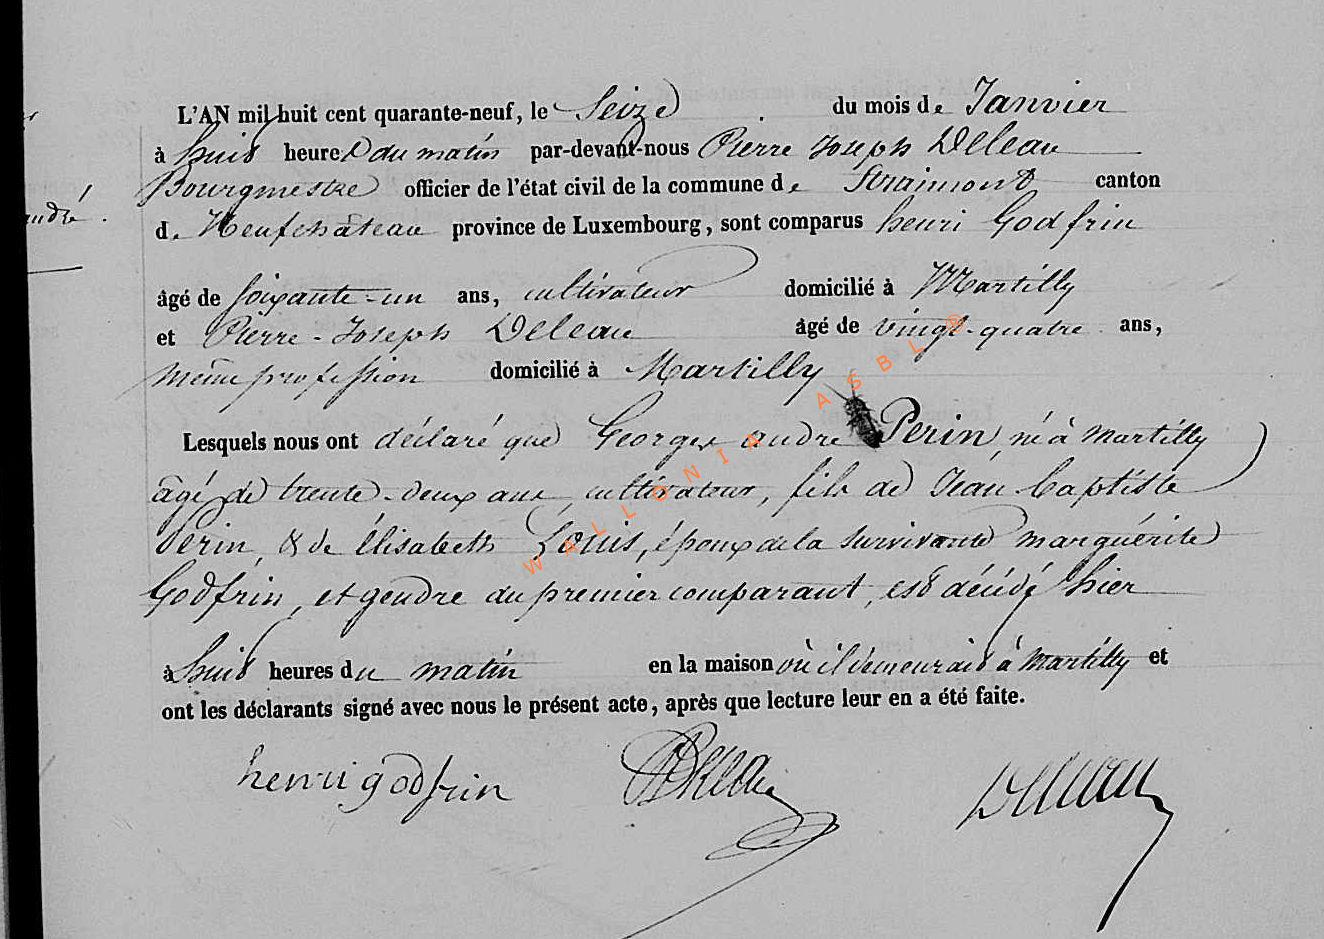 L'AN mil huit cent quarante-neuf, le Seize du mois de Janvier
à huit heures du matin par-devant-nous Pierre Joseph Deleau
Bourgmestre officier de l'état civil de la commune de Straimont canton
andré.
de Neufchâteau province de Luxembourg, sont comparus henri Godfrin
âgé de soixante-un ans, cultivateur domicilié à Martilly
et Pierre-Joseph Deleau âgé de vingt-quatre ans,
même profession domicilié à Martilly
Lesquels nous ont déclaré que George andré Perin, né à Martilly
âgé de trente-deux ans cultivateur, fils de Jean baptiste
Perin, & de élisabeth Louis, époux de la survivante marguérite
Godfrin, et gendre du premier comparant, est décédé hier
à huit heures du matin en la maison où il demeurait à Martilly et
ont les déclarants signé avec nous le présent acte, après que lecture leur en a été faite.
henri godfrin Deleau
WALLONIA ASBL ©